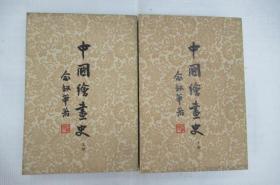 中國繪畫史
俞劍華著
上冊
中國繪畫史
俞劍華著
下冊